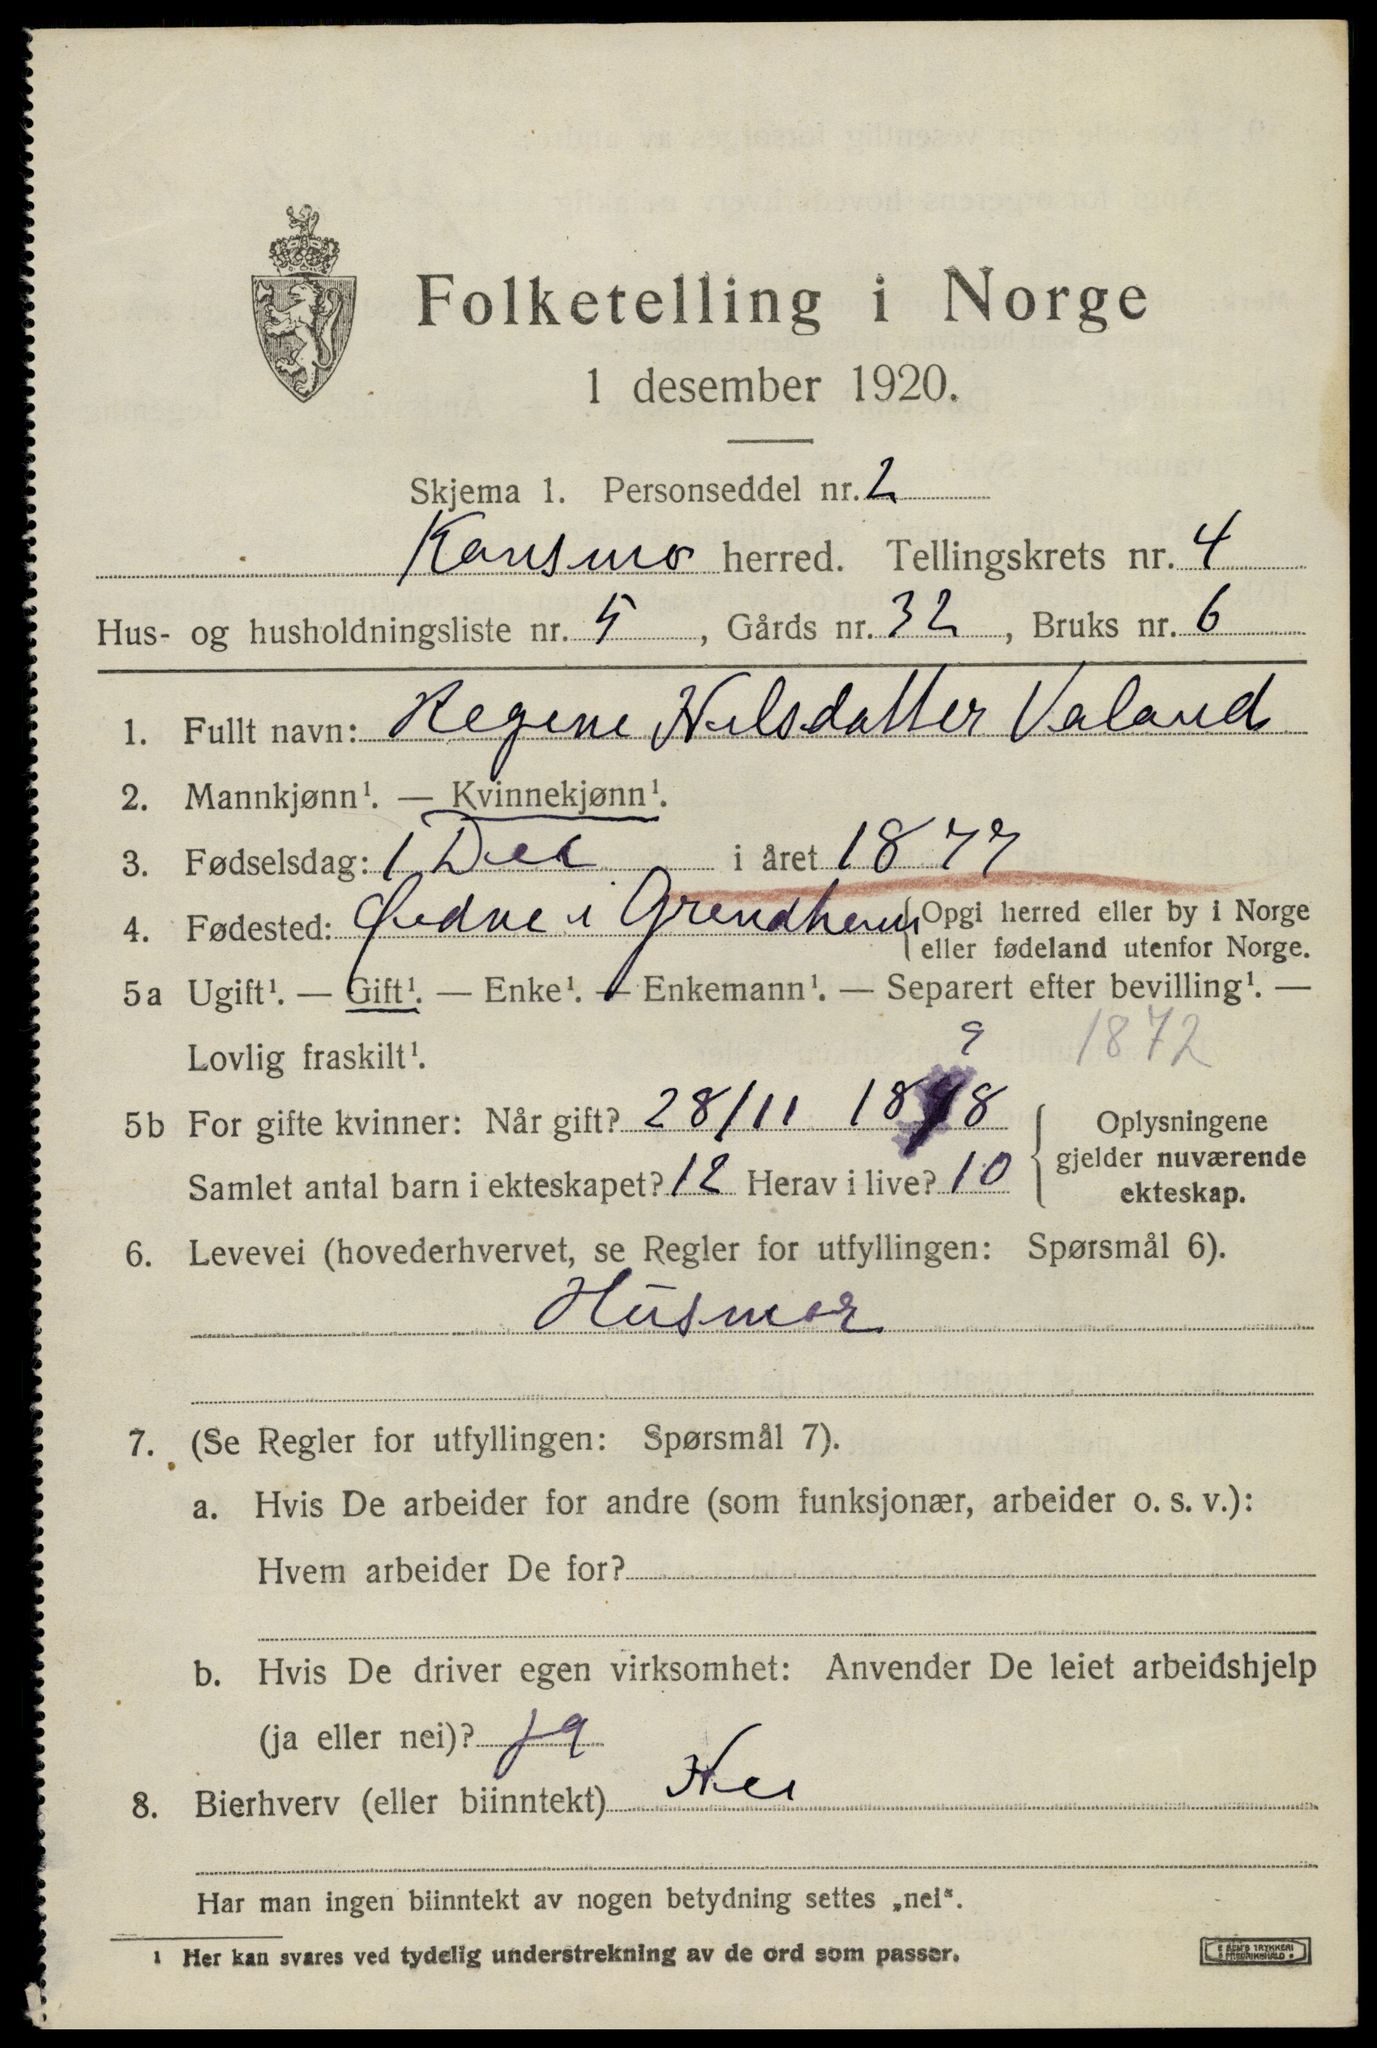 Folketelling i Norge
1 desember 1920.
Skjema 1. Personseddel nr. 2
Konsmo herred. Tellingskrets nr. 4
Hus- og husholdningsliste nr. 5, Gårds nr. 32, Bruks nr. 6
1. Fullt navn: Regine Nilsdatter Valand
2. Mannkjønn¹. — Kvinnekjønn¹.
3. Fødselsdag: 1 Dec i året 1877
4. Fødested: Øidne i Grendheim {Opgi herred eller by i Norge
eller fødeland utenfor Norge.
5a Ugift¹. — Gift¹. — Enke¹. — Enkemann¹. — Separert efter bevilling¹. —
Lovlig fraskilt¹. 9 1872
5b For gifte kvinner: Når gift? 28/11 1898 { Oplysningene
gjelder nuværende
ekteskap.
Samlet antal barn i ekteskapet? 12 Herav i live? 10
6. Levevei (hovederhvervet, se Regler for utfyllingen: Spørsmål 6).
Husmor
7. (Se Regler for utfyllingen: Spørsmål 7).
a. Hvis De arbeider for andre (som funksjonær, arbeider o. s. v.):
Hvem arbeider De for?
b. Hvis De driver egen virksomhet: Anvender De leiet arbeidshjelp
(ja eller nei)? ja
8. Bierhverv (eller biinntekt) Nei
Har man ingen biinntekt av nogen betydning settes „nei“.
¹ Her kan svares ved tydelig understrekning av de ord som passer.